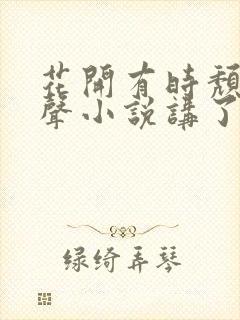 花開有時頹
聲小說講了
绿绮弄琴